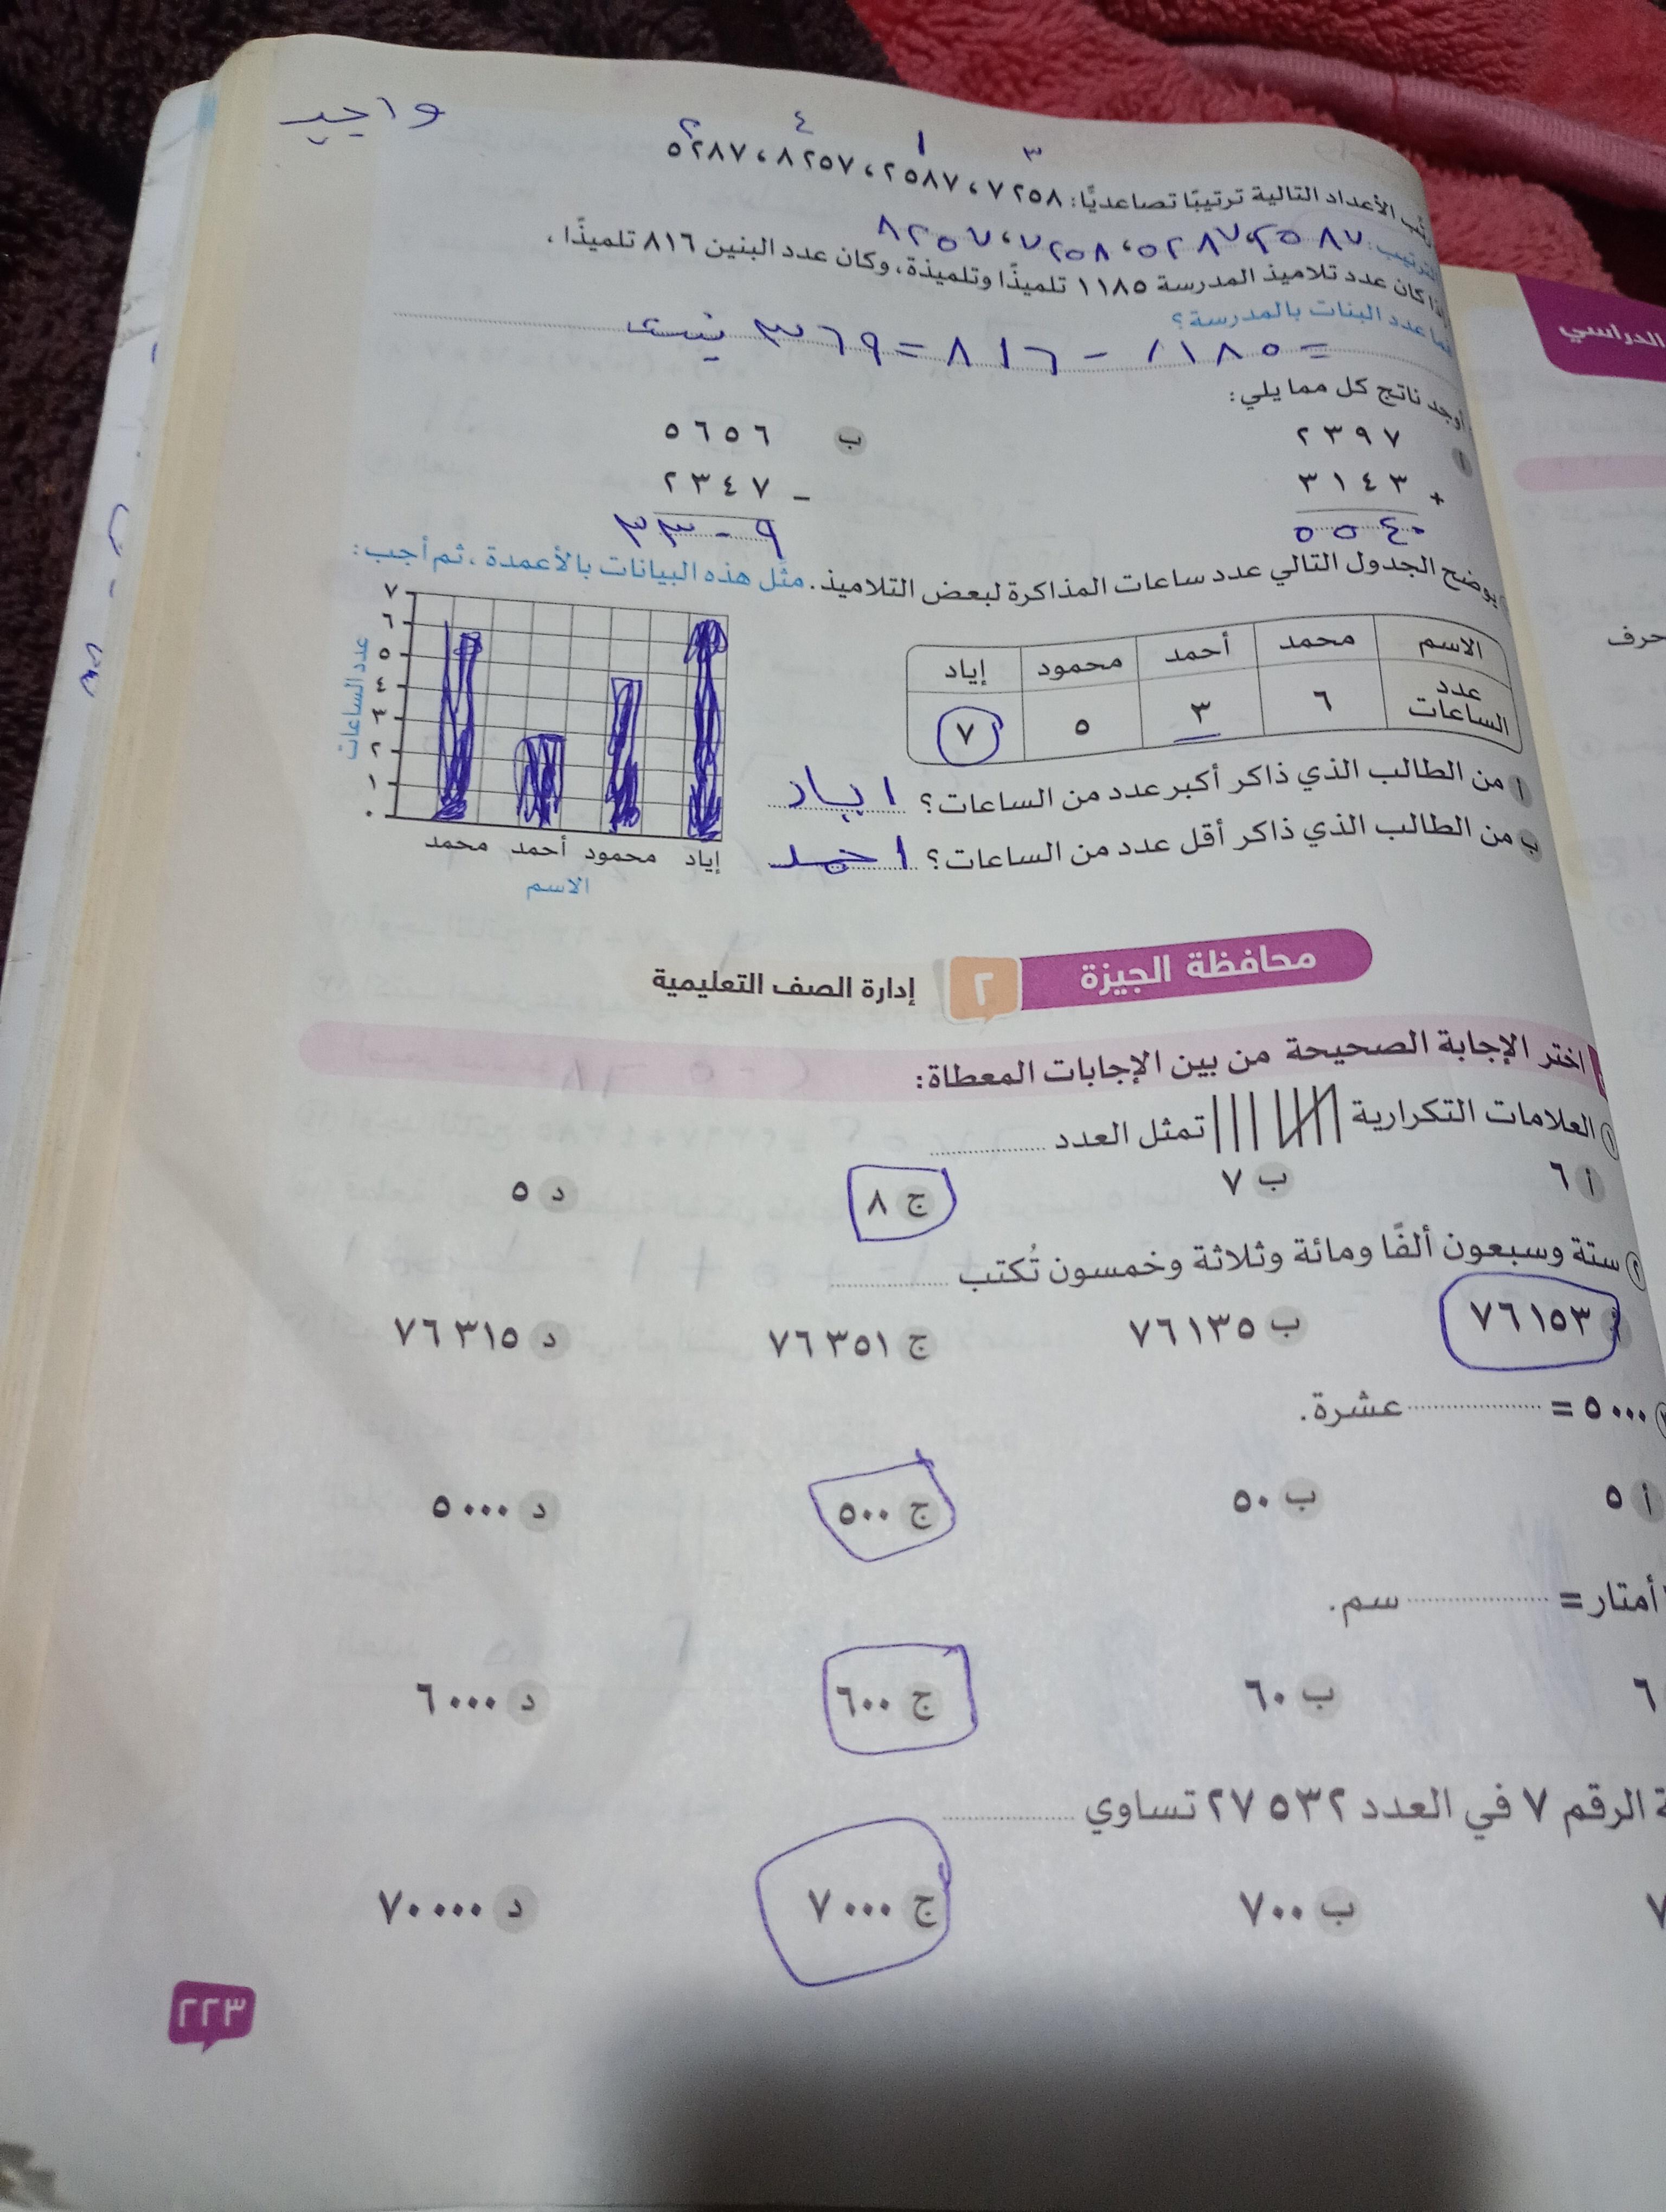 واجب
٢ ٤ ١ ٣
رتب الأعداد التالية ترتيبًا تصاعديًا: ٧٢٥٨ ، ٢٥٨٧ ، ٨٢٥٧ ، ٥٢٨٧
الترتيب: ٢٥٨٧ ، ٥٢٨٧ ، ٧٢٥٨ ، ٨٢٥٧
إذا كان عدد تلاميذ المدرسة ١١٨٥ تلميذًا وتلميذة، وكان عدد البنين ٨١٦ تلميذًا،
فما عدد البنات بالمدرسة؟
= ١١٨٥ – ٨١٦ = ٣٦٩ بنت
أوجد ناتج كل مما يلي:
أ ٢٣٩٧ ب ٥٦٥٦
+ ٣١٤٣ – ٢٣٤٧
٥٥٤٠ ٣٣٠٩
يوضح الجدول التالي عدد ساعات المذاكرة لبعض التلاميذ. مثّل هذه البيانات بالأعمدة، ثم أجب:
الاسم محمد أحمد محمود إياد
عدد الساعات ٦ ٣ ٥ ٧
أ من الطالب الذي ذاكر أكبر عدد من الساعات؟ اياد
ب من الطالب الذي ذاكر أقل عدد من الساعات؟ احمد
عدد الساعات
٧
٦
٥
٤
٣
٢
١
٠
محمد أحمد محمود إياد
الاسم
محافظة الجيزة ٢ إدارة الصف التعليمية
اختر الإجابة الصحيحة من بين الإجابات المعطاة:
١ العلامات التكرارية تمثل العدد
أ ٦ ب ٧ ج ٨ د ٥
٢ ستة وسبعون ألفًا ومائة وثلاثة وخمسون تُكتب
أ ٧٦١٥٣ ب ٧٦١٣٥ ج ٧٦٣٥١ د ٧٦٣١٥
٥٠٠٠ = عشرة.
أ ٥ ب ٥٠ ج ٥٠٠ د ٥٠٠٠
أمتار = سم.
٦ ب ٦٠ ج ٦٠٠ د ٦٠٠٠
الرقم ٧ في العدد ٢٧٥٣٢ تساوي
٧ ب ٧٠٠ ج ٧٠٠٠ د ٧٠٠٠٠
٢٢٣
الدراسي
حرف